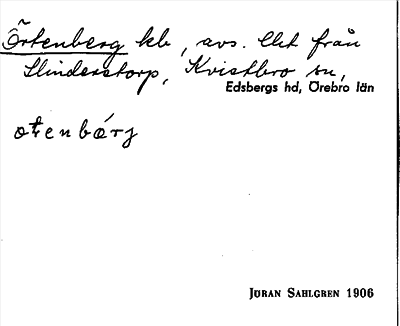 Örtenberg kb, avs. lht från
Slinderstorp, Kvistbro sn,
Edsbergs hd, Örebro län
otenbärj
JÖRAN SAHLGREN 1906